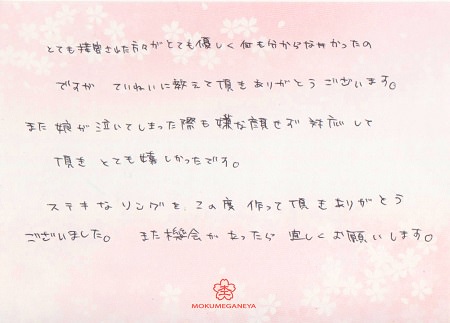 とても接客された方々がとても優しく何も分からなかったの
ですが ていねいに教えて頂きありがとうございます。
また娘が泣いてしまった際も嫌な顔せず 対応して
頂き とても嬉しかったです。
ステキなリングを、この度 作って頂きありがとう
ございました。 また機会があったら 宜しくお願いします。
MOKUMEGANEYA